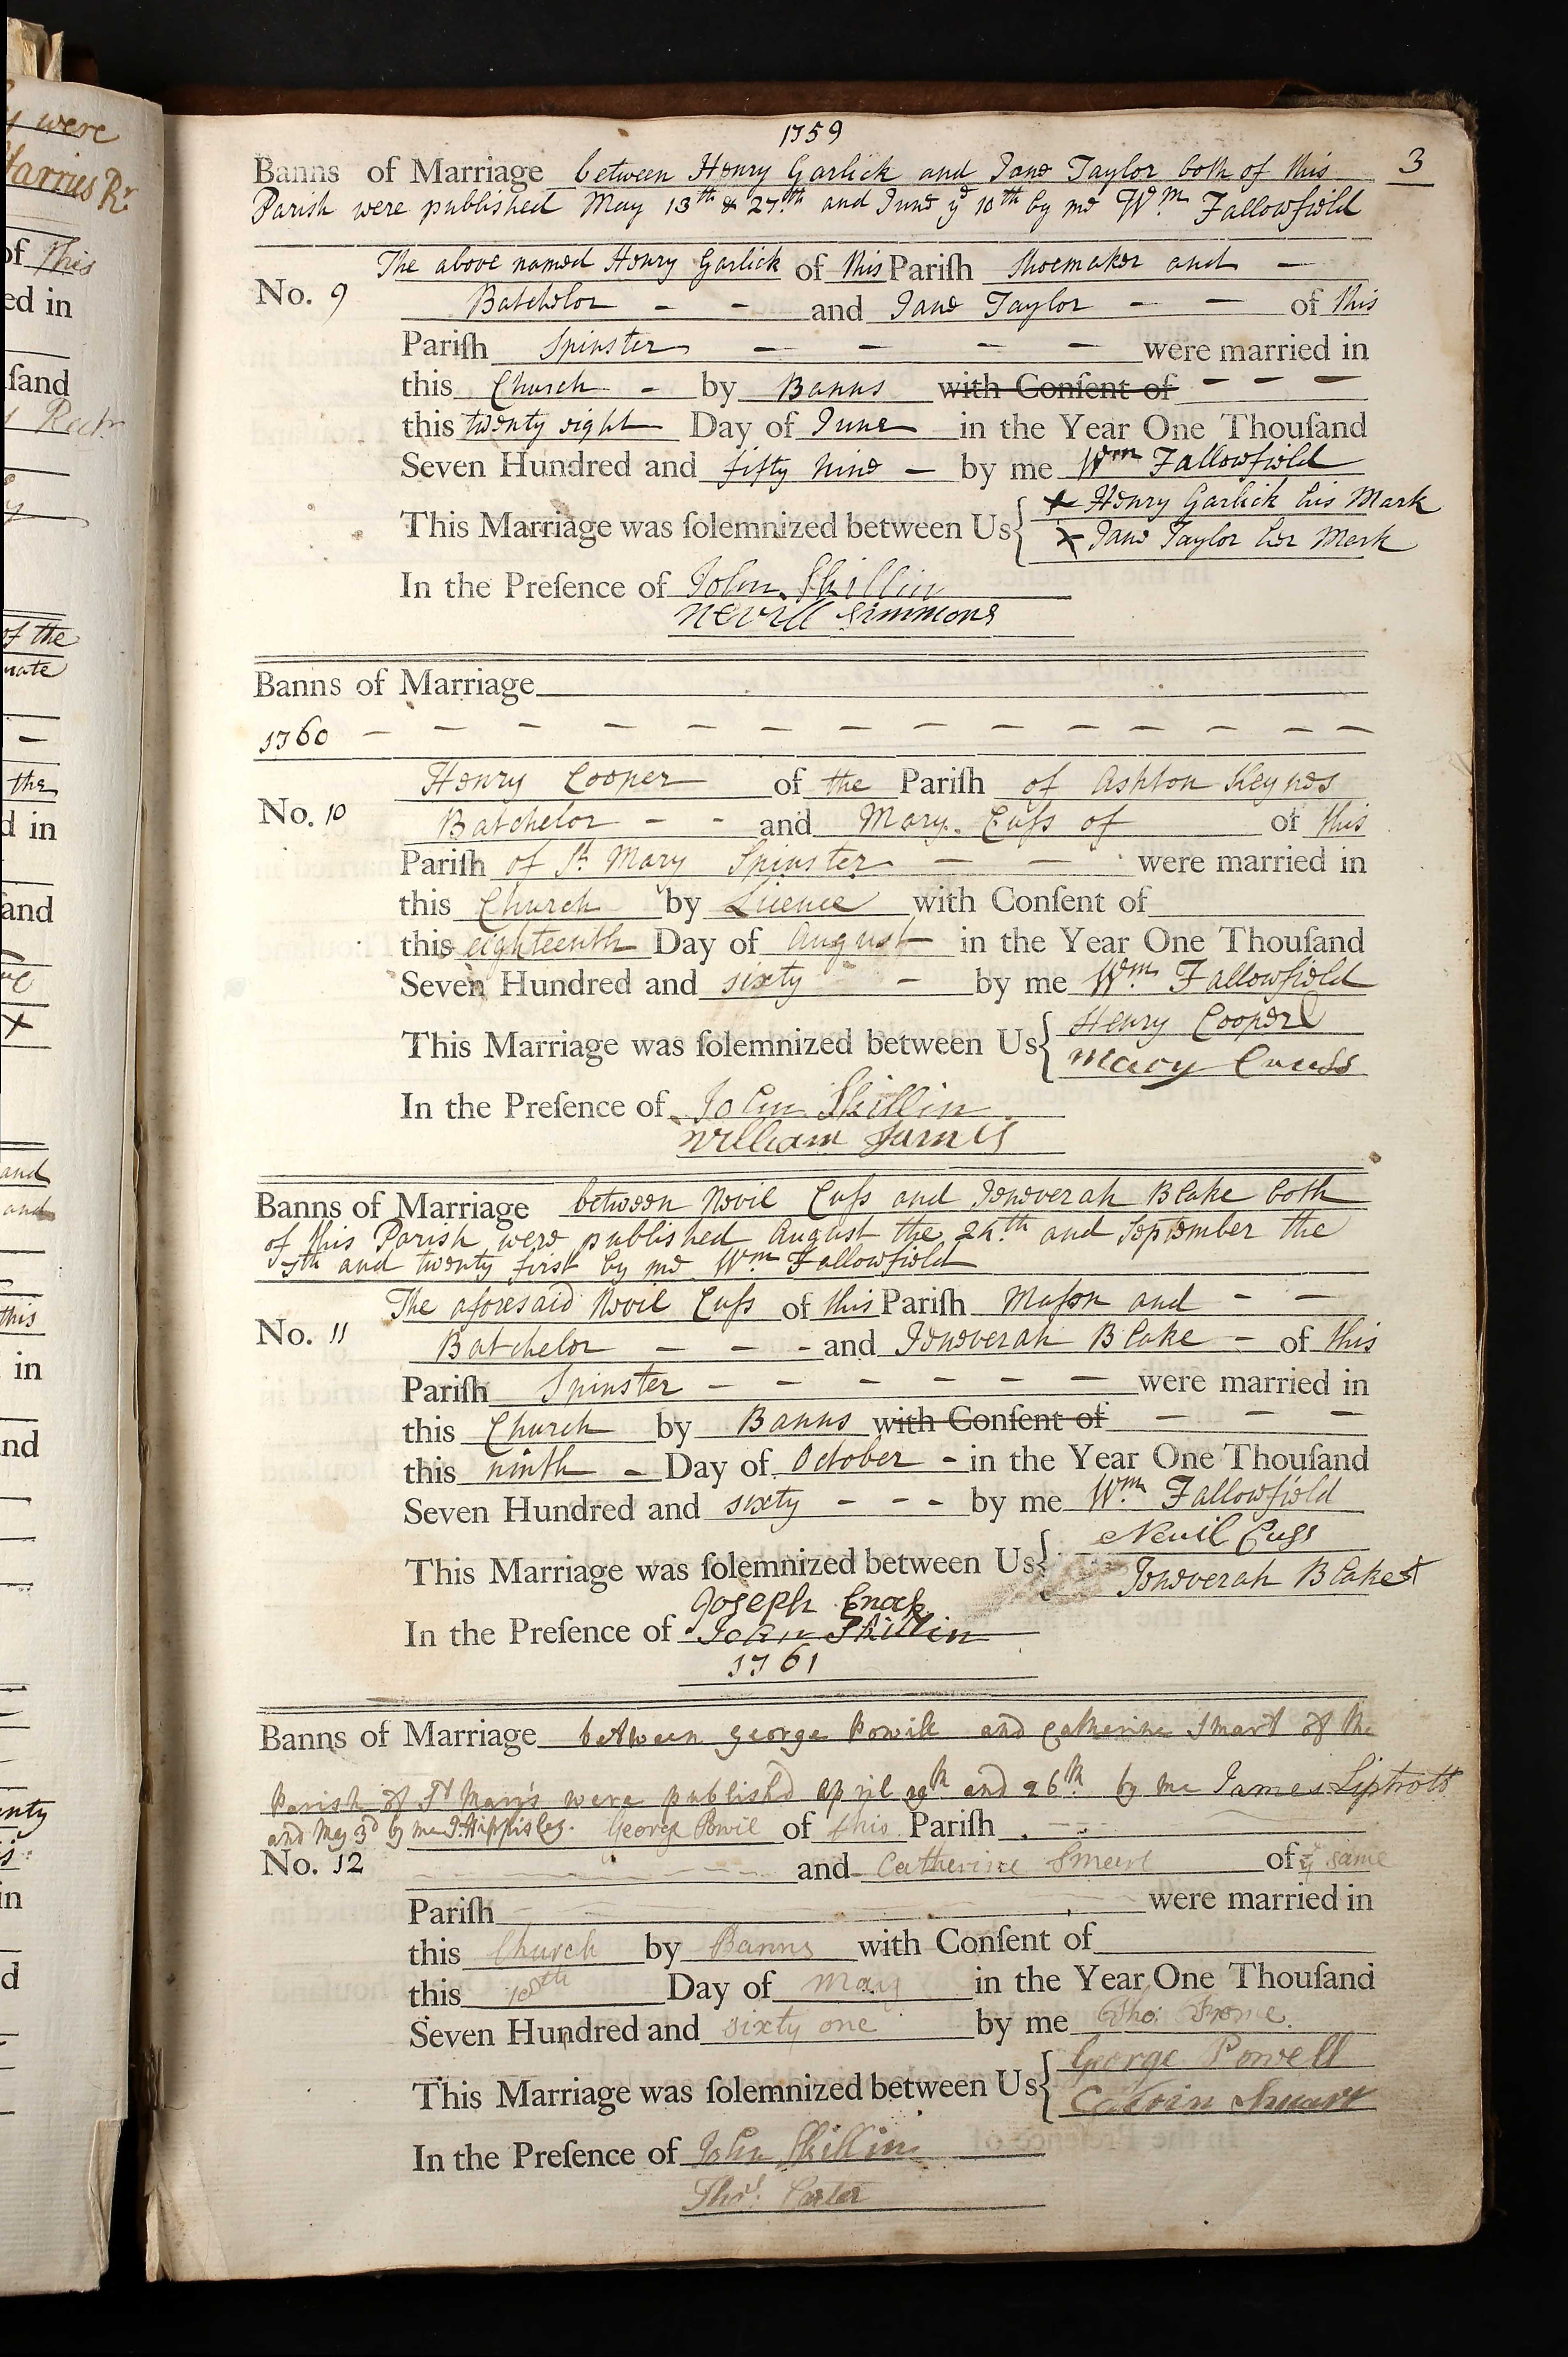 1759
3
Banns of Marriage between Henry Garlick and Jane Taylor both of this
Parish were published May 13th & 27th and June ye 10th by me Wm Fallowfield
The above named Henry Garlick of this Pariſh Shoemaker and -
No. 9 Batchelor - - and Jane Taylor - - of this
Pariſh Spinster - - - - were married in
this Church - by Banns with Conſent of - - -
this twenty eight Day of June in the Year One Thouſand
Seven Hundred and fifty nine - by me Wm Fallowfield
This Marriage was ſolemnized between Us { X Henry Garlick his Mark
X Jane Taylor her Mark
In the Preſence of John Skillin
Nevill Simmons
Banns of Marriage
1760 - - - - - - - - - - - - -
Henry Cooper of the Pariſh of Ashton Keynes
No. 10 Batchelor - - and Mary Cuſs of of this
Pariſh of St Mary Spinster - - were married in
this Church by Licence with Conſent of
this eighteenth Day of August in the Year One Thouſand
Seven Hundred and sixty - by me Wm Fallowfield
This Marriage was ſolemnized between Us { Henry Cooper
Mary Cuess
In the Preſence of John Skillin
William
Banns of Marriage between Nevil Cuſs and Jeneverah Blake both
of this Parish were published August the 24th and September the
7th and twenty first by me Wm Fallowfield
The aforesaid Nevil Cuſs of this Pariſh Maſon and - -
No. 11 Batchelor - - - and Jeneverah Blake - of this
Pariſh Spinster - - - - - - were married in
this Church by Banns with Conſent of - - -
this ninth - Day of October - in the Year One Thouſand
Seven Hundred and sixty - - - by me Wm Fallowfield
This Marriage was ſolemnized between Us { Nevil Cuss
Jeneverah Blake X
Joseph Enock
In the Preſence of John Skillin
1761
Banns of Marriage between George Powill and Catherine Smart of the
Parish of St Mary's were publish'd April 19th and 26th by me James Liptrott
and May 3d by me J. Hippisley. George Powil of this Pariſh
No. 12 and Catherine Smart of ye same
Pariſh were married in
this Church by Banns with Conſent of
this 18th Day of May in the Year One Thouſand
Seven Hundred and sixty one by me Tho: Frome.
This Marriage was ſolemnized between Us { George Powell
Catrin Smart
In the Preſence of John Skillin
Thos. Carter